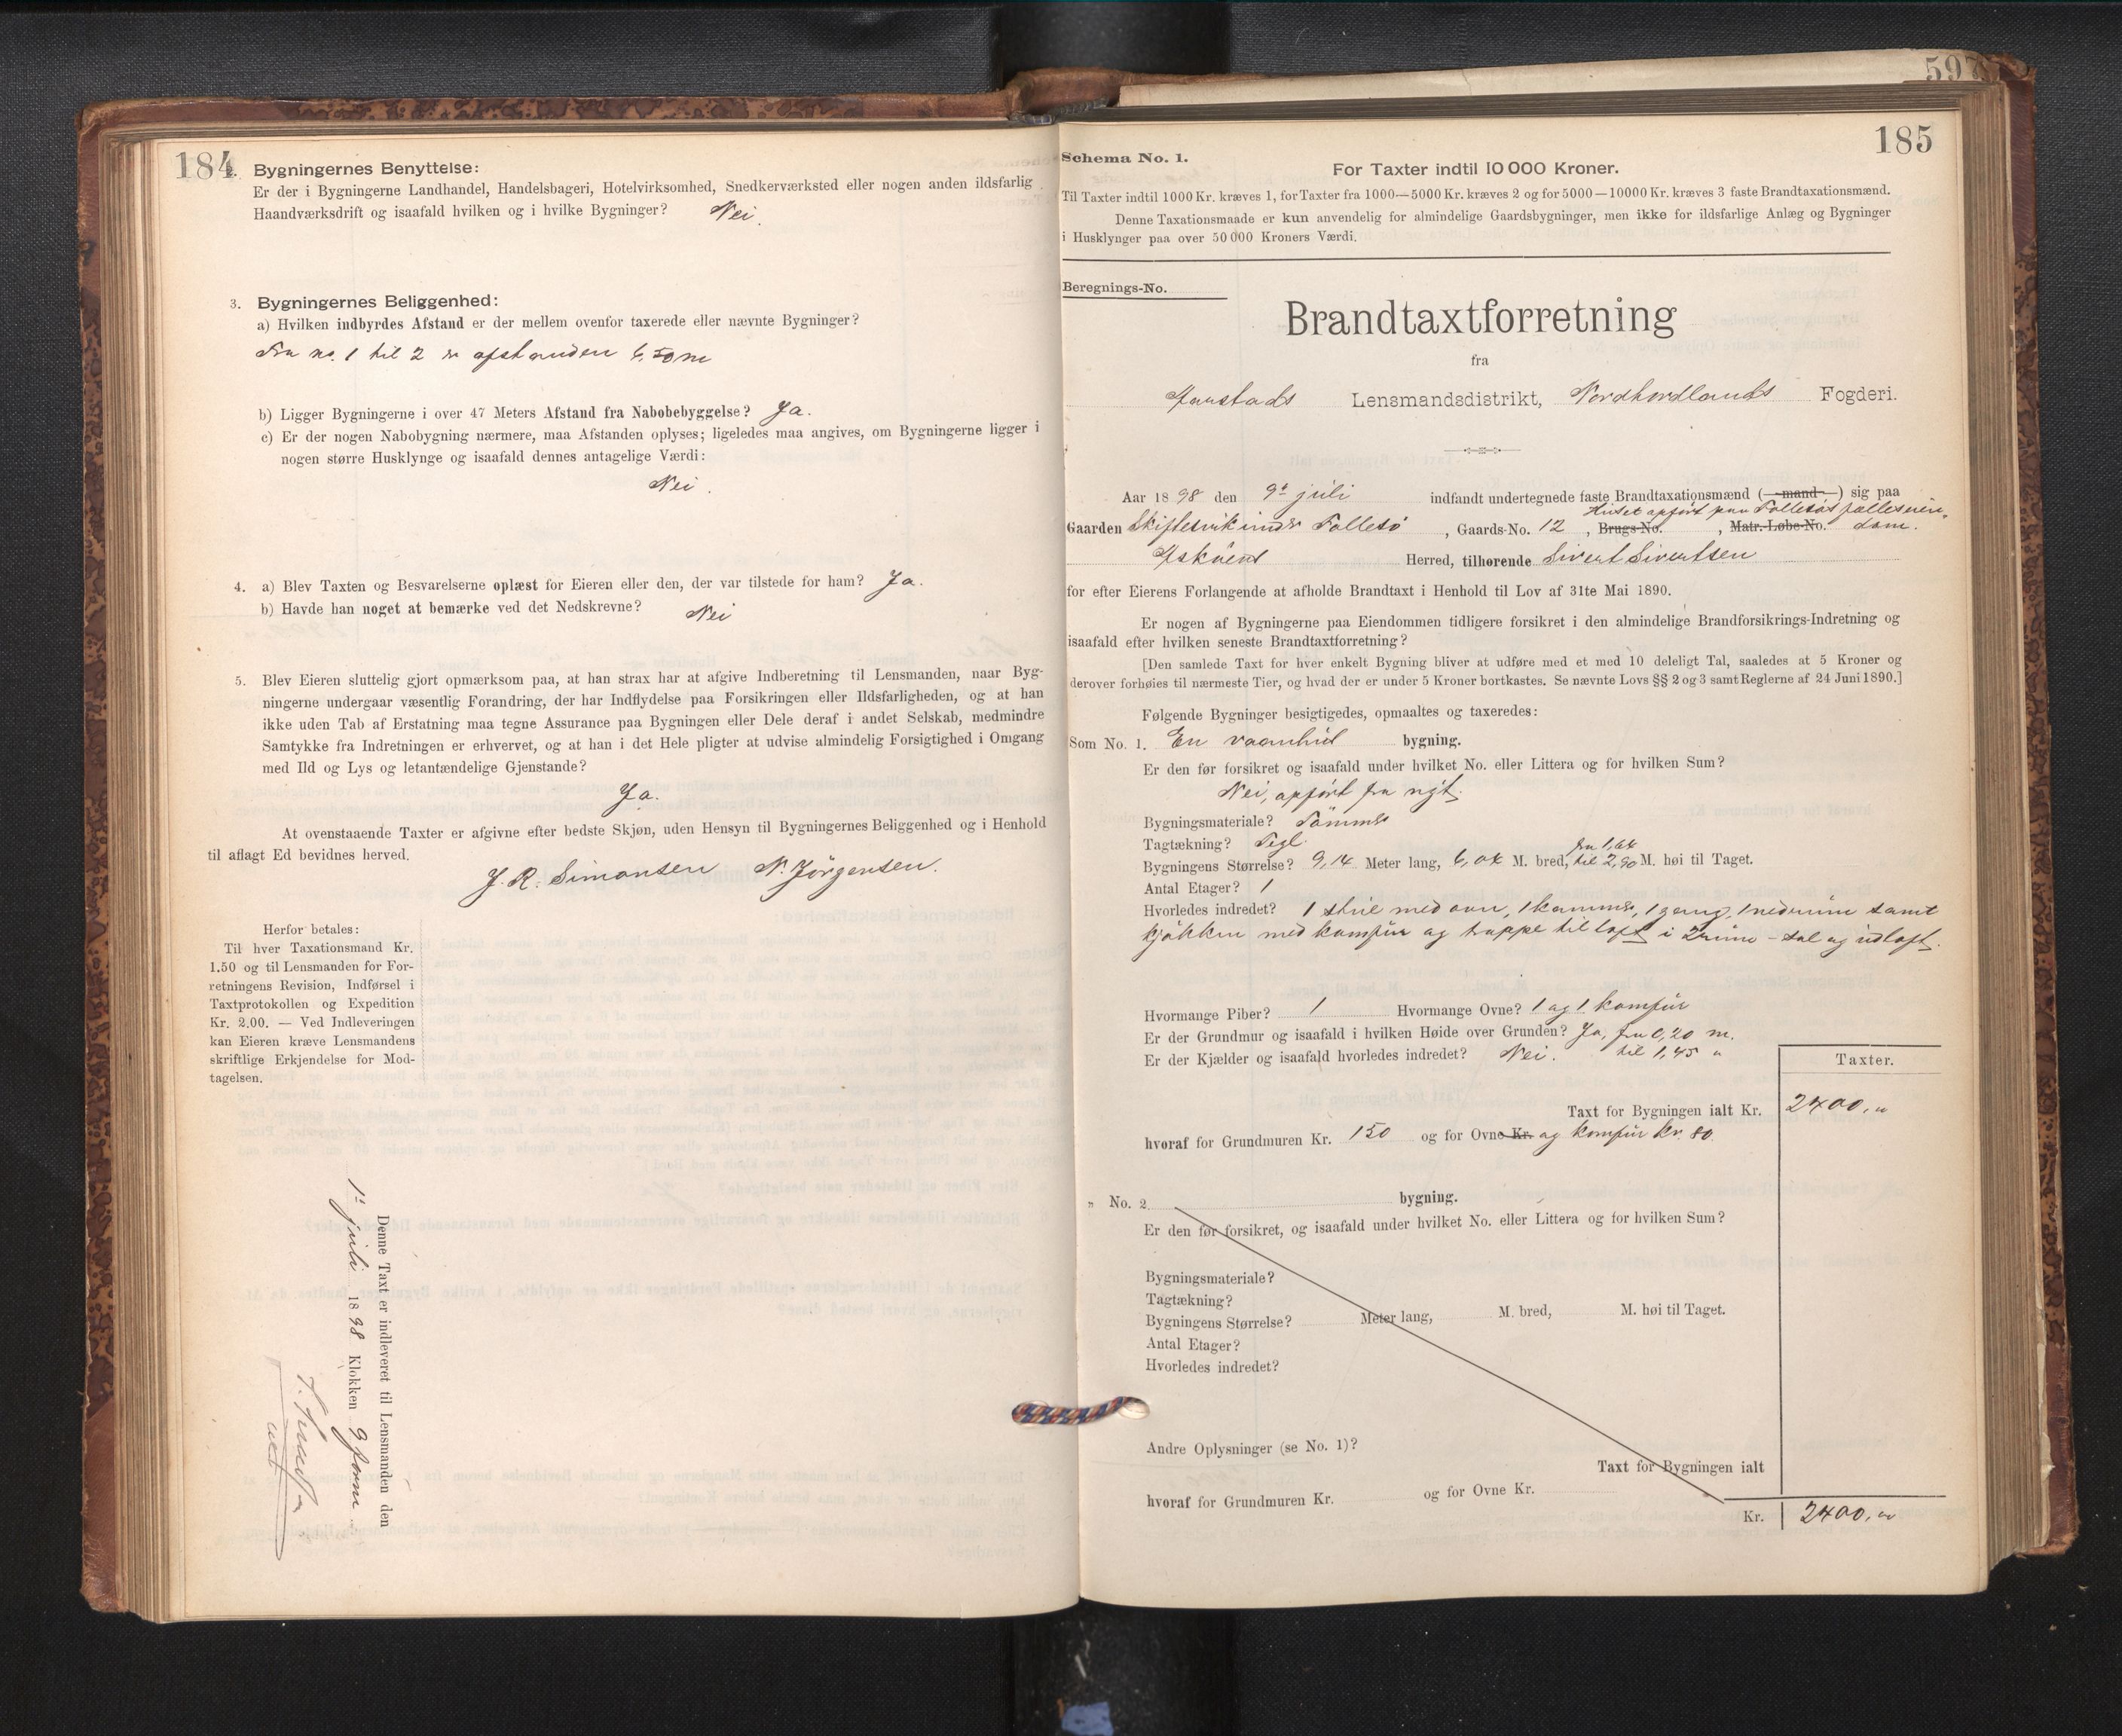 184
2. Bygningernes Benyttelse:
Er der i Bygningerne Landhandel, Handelsbageri, Hotelvirksomhed, Snedkerværksted eller nogen anden ildsfarlig
Haandværksdrift og isaafald hvilken og i hvilke Bygninger? Nei.
3. Bygningernes Beliggenhed:
a) Hvilken indbyrdes Afstand er der mellem ovenfor taxerede eller nævnte Bygninger?
Fra no. 1 til 2 er afstanden 6,50 m
b) Ligger Bygningerne i over 47 Meters Afstand fra Nabobebyggelse? Ja.
c) Er der nogen Nabobygning nærmere, maa Afstanden oplyses; ligeledes maa angives, om Bygningerne ligger i
nogen større Husklynge og isaafald dennes antagelige Værdi:
Nei.
4. a) Blev Taxten og Besvarelserne oplæst for Eieren eller den, der var tilstede for ham? Ja.
b) Havde han noget at bemærke ved det Nedskrevne? Nei
5. Blev Eieren sluttelig gjort opmærksom paa, at han strax har at afgive Indberetning til Lensmanden, naar Byg-
ningerne undergaar væsentlig Forandring, der har Indflydelse paa Forsikringen eller Ildsfarligheden, og at han
ikke uden Tab af Erstatning maa tegne Assurance paa Bygningen eller Dele deraf i andet Selskab, medmindre
Samtykke fra Indretningen er erhvervet, og at han i det Hele pligter at udvise almindelig Forsigtighed i Omgang
med Ild og Lys og letantændelige Gjenstande?
Ja.
At ovenstaaende Taxter er afgivne efter bedste Skjøn, uden Hensyn til Bygningernes Beliggenhed og i Henhold
til aflagt Ed bevidnes herved.
J. R. Simonsen N. Jörgensen.
Herfor betales:
Til hver Taxationsmand Kr.
1.50 og til Lensmanden for For-
retningens Revision, Indførsel i
Taxtprotokollen og Expedition
Kr. 2.00. — Ved Indleveringen
kan Eieren kræve Lensmandens
skriftlige Erkjendelse for Mod-
tagelsen.
Denne Taxt er indleveret til Lensmanden den
1ste juli 1898 Klokken 9 form.
597
185
Schema No. 1.
For Taxter indtil 10 000 Kroner.
Til Taxter indtil 1000 Kr. kræves 1, for Taxter fra 1000—5000 Kr. kræves 2 og for 5000—10000 Kr. kræves 3 faste Brandtaxationsmænd.
Denne Taxationsmaade er kun anvendelig for almindelige Gaardsbygninger, men ikke for ildsfarlige Anlæg og Bygninger
i Husklynger paa over 50 000 Kroners Værdi.
Beregnings-No.
Brandtaxtforretning
fra
Lensmandsdistrikt, Nordhordlands Fogderi.
Aar 1898 den 9de juli indfandt undertegnede faste Brandtaxationsmænd (mand) sig paa
Huset opført paa Follesøs fælleseien-
Gaarden Skiftesvik indr Follesö, Gaards-No. 12, Brugs-No. , Matr.-Løbe-No. dom.
Askøens Herred, tilhørende Sivert Sivertsen
for efter Eierens Forlangende at afholde Brandtaxt i Henhold til Lov af 31te Mai 1890.
Er nogen af Bygningerne paa Eiendommen tidligere forsikret i den almindelige Brandforsikrings-Indretning og
isaafald efter hvilken seneste Brandtaxtforretning?
[Den samlede Taxt for hver enkelt Bygning bliver at udføre med et med 10 deleligt Tal, saaledes at 5 Kroner og
derover forhøies til nærmeste Tier, og hvad der er under 5 Kroner bortkastes. Se nævnte Lovs §§ 2 og 3 samt Reglerne af 24 Juni 1890.]
Følgende Bygninger besigtigedes, opmaaltes og taxeredes:
Som No. 1. En vaanhus bygning.
Er den før forsikret og isaafald under hvilket No. eller Littera og for hvilken Sum?
Nei, opført fra nyt.
Bygningsmateriale? Tömmer
Tagtækning? Tegl.
fra 1,64
Bygningens Størrelse? 9,14 Meter lang, 6,04 M. bred, til 2,90 M. høi til Taget.
Antal Etager? 1
Hvorledes indredet? 1 stue med ovn, 1 kammer, 1 gang, 1 nedrum samt
kjøkken med komfür og trappe til loft i 2 rum – sal og udloft.
Hvormange Piber? 1 Hvormange Ovne? 1 og 1 komfür
Er der Grundmur og isaafald i hvilken Høide over Grunden? Ja, fra 0,20 m.
Er der Kjælder og isaafald hvorledes indredet? Nei. til 1,45 "
Taxter.
Taxt for Bygningen ialt Kr. 2400, "
hvoraf for Grundmuren Kr. 150 og for Ovne Kr. og komfür kr. 80.
" No. 2. bygning.
Er den før forsikret, og isaafald under hvilket No. eller Littera og for hvilken Sum?
Bygningsmateriale?
Tagtækning?
Bygningens Størrelse? Meter lang, M. bred, M. høi til Taget.
Antal Etager?
Hvorledes indredet?
Andre Oplysninger (se No. 1)?
Taxt for Bygningen ialt
hvoraf for Grundmuren Kr. og for Ovne Kr.
Kr. 2400, "